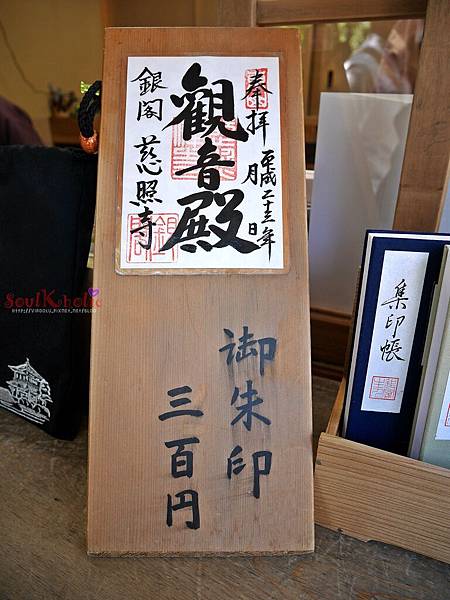 奉拝
平成二十三年
月 日
觀音殿
銀閣 慈照寺
銀閣
御朱印
三百円
集印帳
SoulKoholic